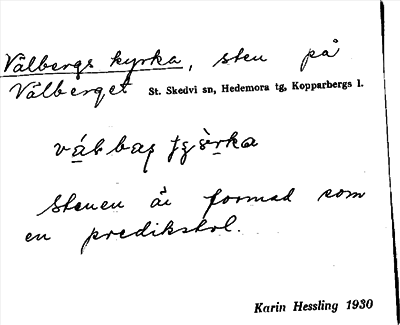 Vålbergs kyrka, sten på
Vålberget St. Skedvi sn, Hedemora tg, Kopparbergs l.
Stenen är formad som
en predikstol.
Karin Hessling 1930